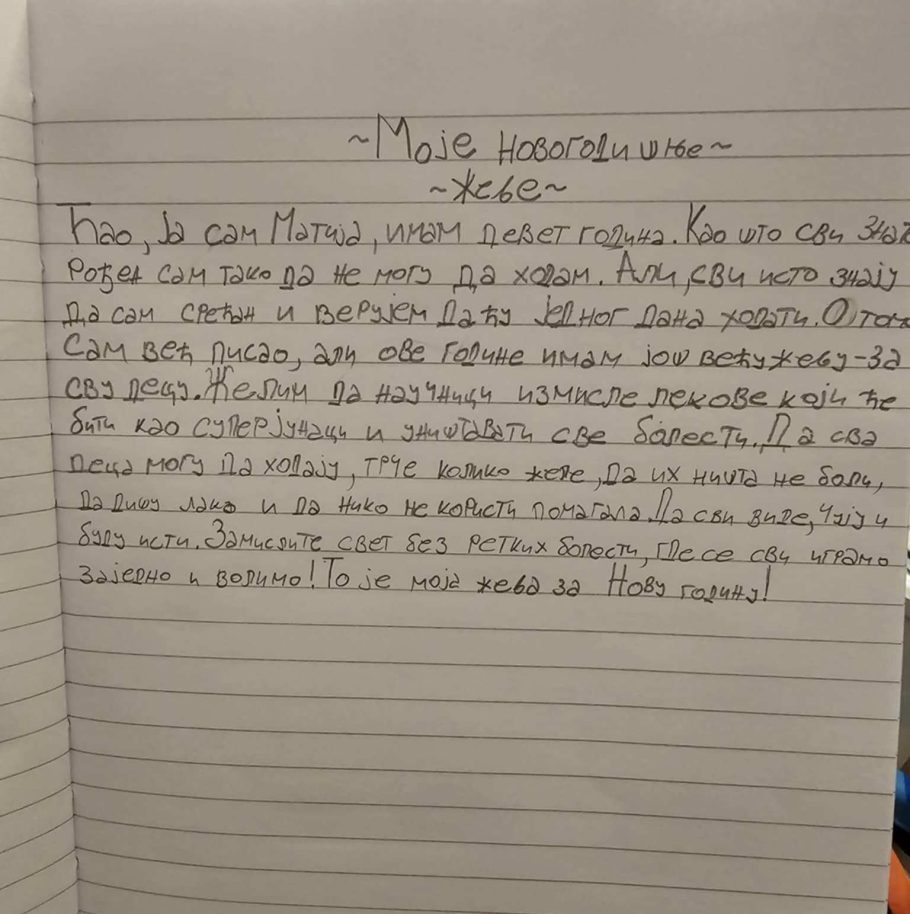 ~Моје новогодишње~
~жеље~
Ћао, Ја сам Матија, имам девет година. Као што сви знат
Рођен сам тако да не могу да ходам. Али, сви исто знају
Да сам срећан и верујем да ћу једног дана ходати. О том
Сам већ писао, али ове године имам још већу жељу-за
сву децу. Желим да научници измисле лекове који ће
бити као суперјунаци и уништавати све болести. Да сва
деца могу да ходају, трче колико желе, да их ништа не боли,
да дишу лако и да нико не користи помагала. Да сви виде, чују и
буду исти. Замислите свет без ретких болести, где се сви играмо
заједно и волимо! То је моја жеља за Нову годину!